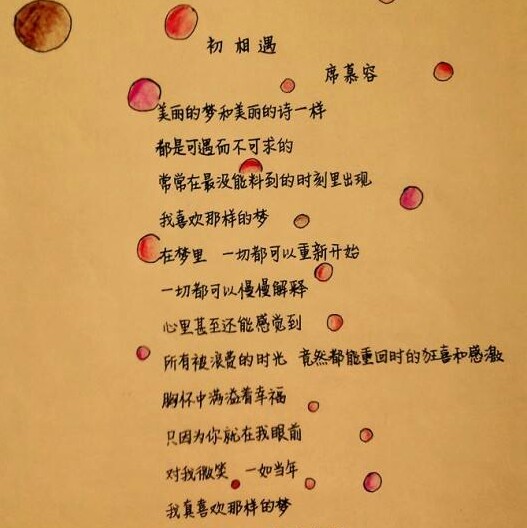 初相遇
席慕容
美丽的梦和美丽的诗一样
都是可遇而不可求的
常常在最没能料到的时刻里出现
我喜欢那样的梦
在梦里 一切都可以重新开始
一切都可以慢慢解释
心里甚至还能感觉到
所有被浪费的时光 竟然都能重回时的狂喜和感激
胸怀中满溢着幸福
只因为你就在我眼前
对我微笑 一如当年
我真喜欢那样的梦